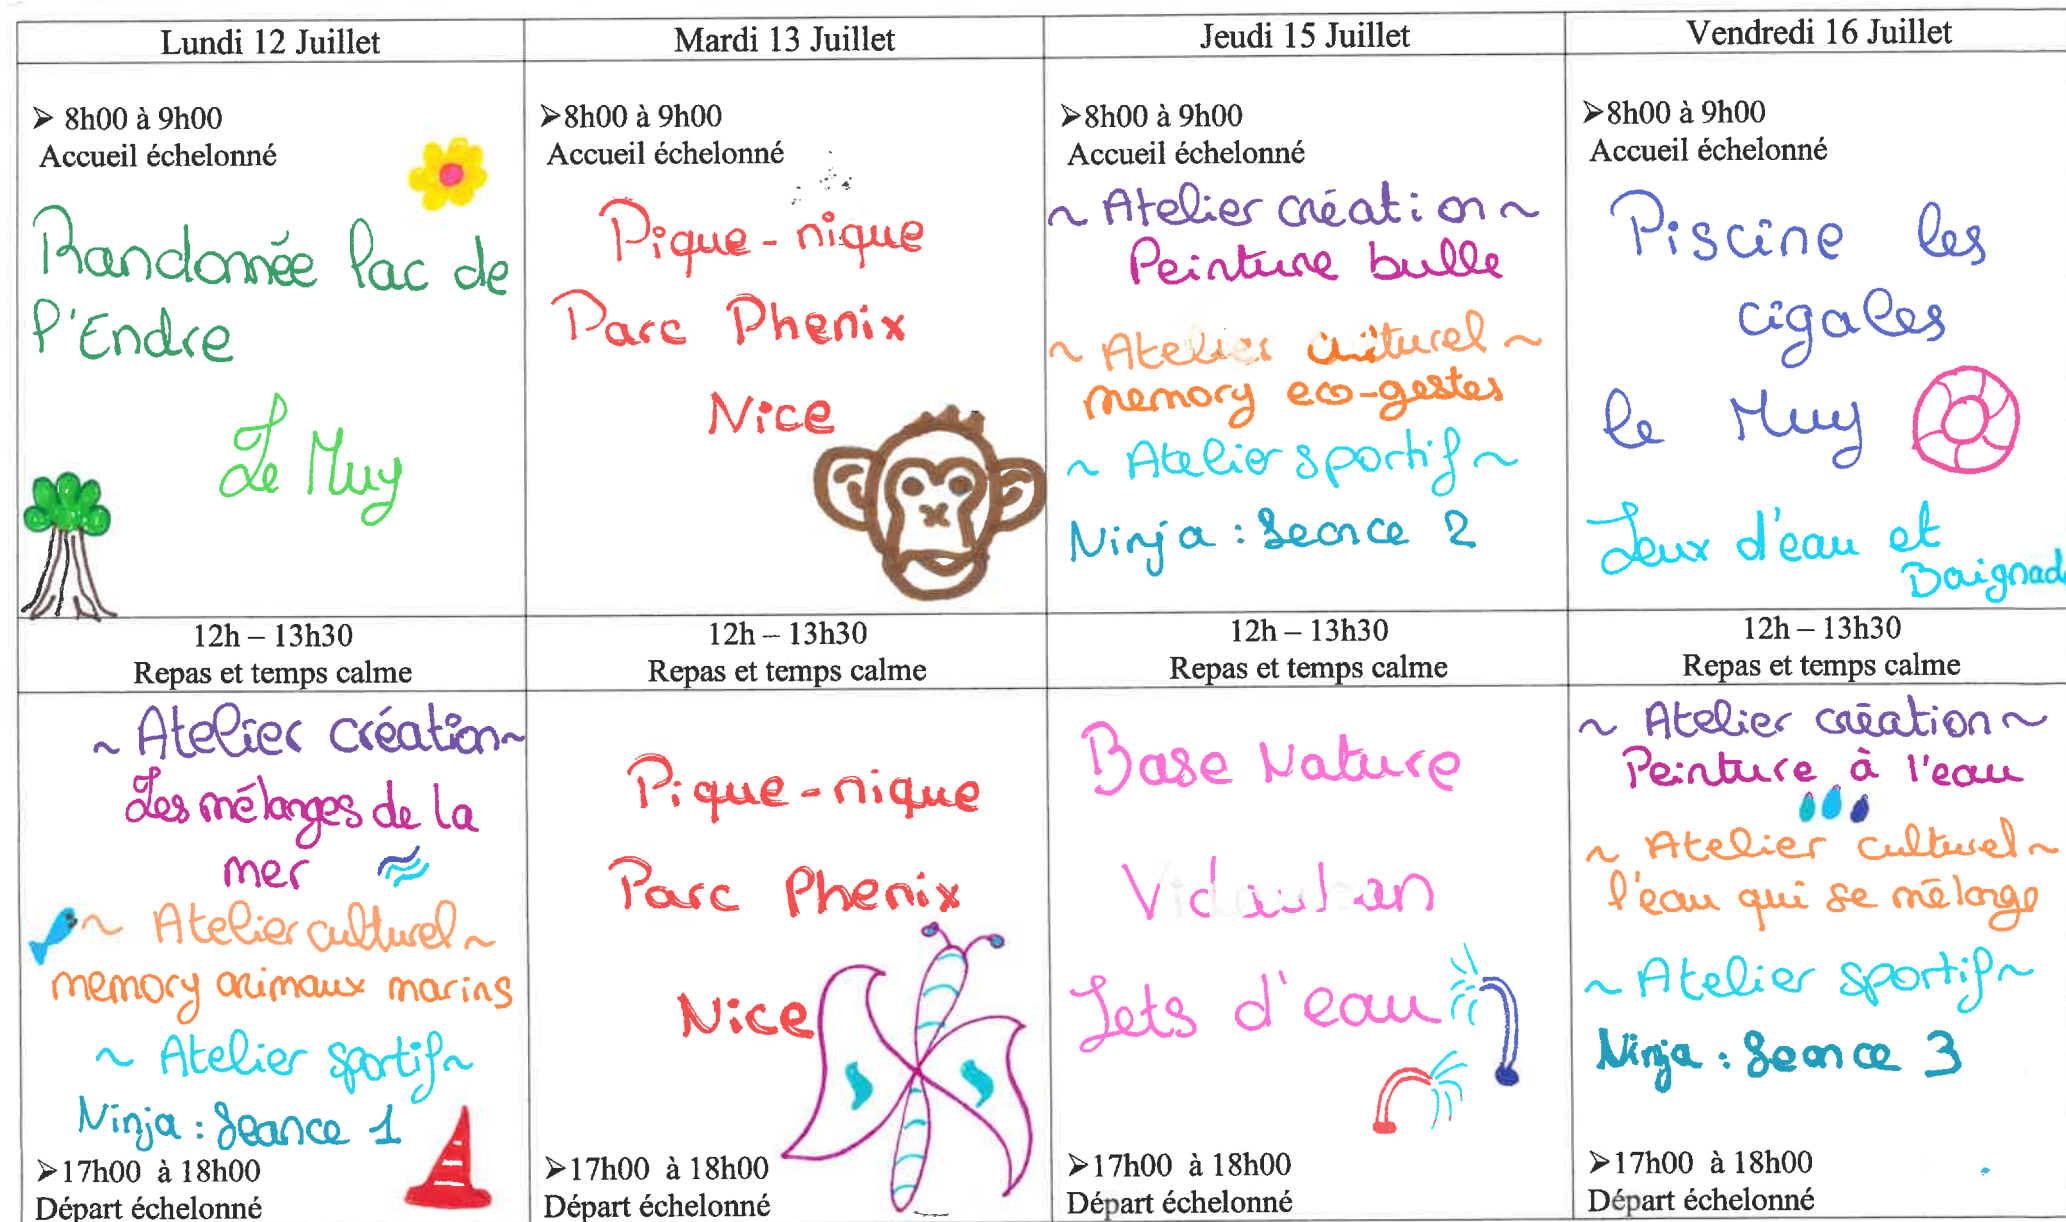 Lundi 12 Juillet
Mardi 13 Juillet
Jeudi 15 Juillet
Vendredi 16 Juillet
➤ 8h00 à 9h00
Accueil échelonné
Randonnée lac de
l'Endre
Le Muy
➤8h00 à 9h00
Accueil échelonné
Pique-nique
Parc Phenix
Nice
➤8h00 à 9h00
Accueil échelonné
~ Atelier création ~
Peinture bulle
~ Atelier culturel ~
memory eco-gestes
~ Atelier sportif ~
Ninja : Seance 2
➤8h00 à 9h00
Accueil échelonné
Piscine les
cigales
le Muy
Jeux d'eau et
Baignade
12h – 13h30
Repas et temps calme
12h – 13h30
Repas et temps calme
12h – 13h30
Repas et temps calme
12h – 13h30
Repas et temps calme
~ Atelier création~
Les mélanges de la
mer
~ Atelier culturel ~
memory animaux marins
~ Atelier sportif~
Ninja : Seance 1
➤17h00 à 18h00
Départ échelonné
Pique-nique
Parc Phenix
Nice
➤17h00 à 18h00
Départ échelonné
Base Nature
Vidauban
Jets d'eau
➤17h00 à 18h00
Départ échelonné
~ Atelier création ~
Peinture à l'eau
~ Atelier culturel ~
l'eau qui se mélange
~ Atelier sportif ~
Ninja : Seance 3
➤17h00 à 18h00
Départ échelonné